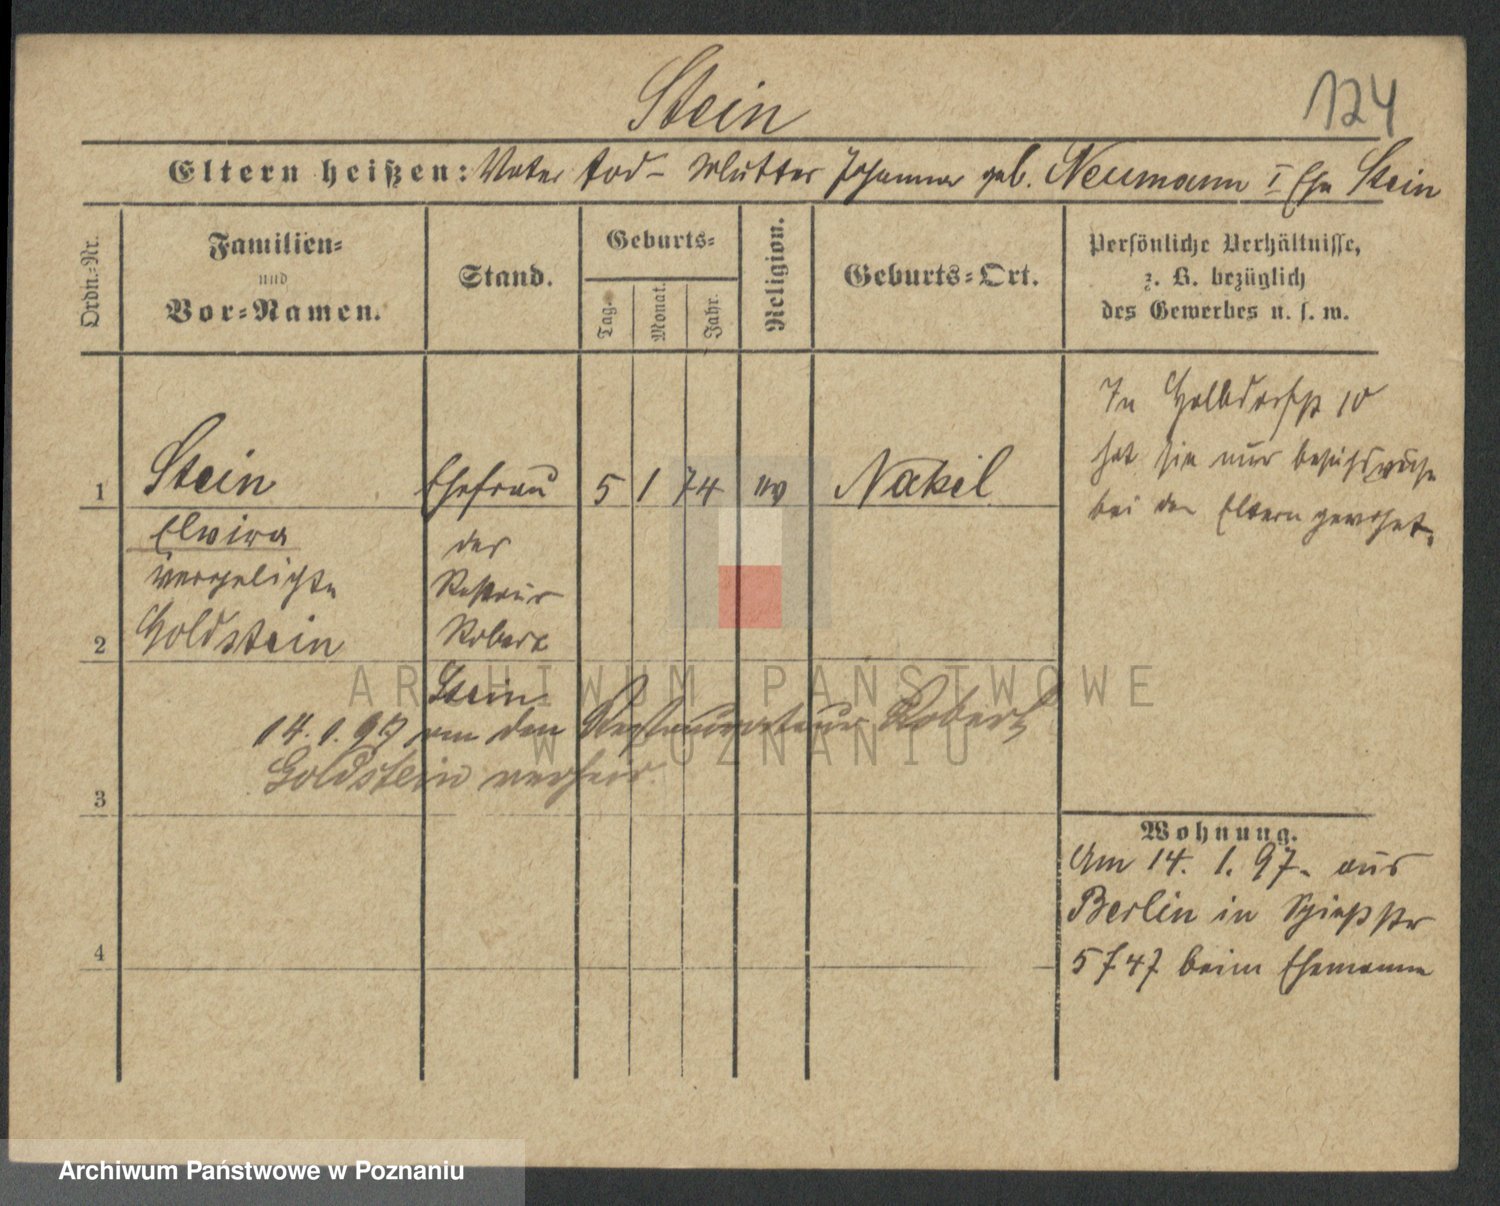 Stein
124
Eltern heißen: Vater tod - Mutter Johanna geb. Neumann I Ehe Stein
Ordn.=Nr.
Familien=
und
Vor=Namen.
Stand.
Geburts=
Tag.
Monat.
Jahr.
Religion.
Geburts=Ort.
Persönliche Verhältnisse,
z. B. bezüglich
des Gewerbes u. s. w.
1
Stein
Ehefrau
5
1
74
Nakel
Elvira
verehelichte
2
Goldstein
der
Restaur
Robert
Stein
14. 1. 97 den Restaurateur Robert
Goldstein verheir.
3
4
In Halbdorfstr 10
hat sie nur besuchsweise
bei den Eltern gewohnt.
Wohnung.
Am 14. 1. 97. aus
Berlin in
5747 beim Ehemann
ARCHIWUM PAŃSTWOWE
W POZNANIU
Archiwum Państwowe w Poznaniu